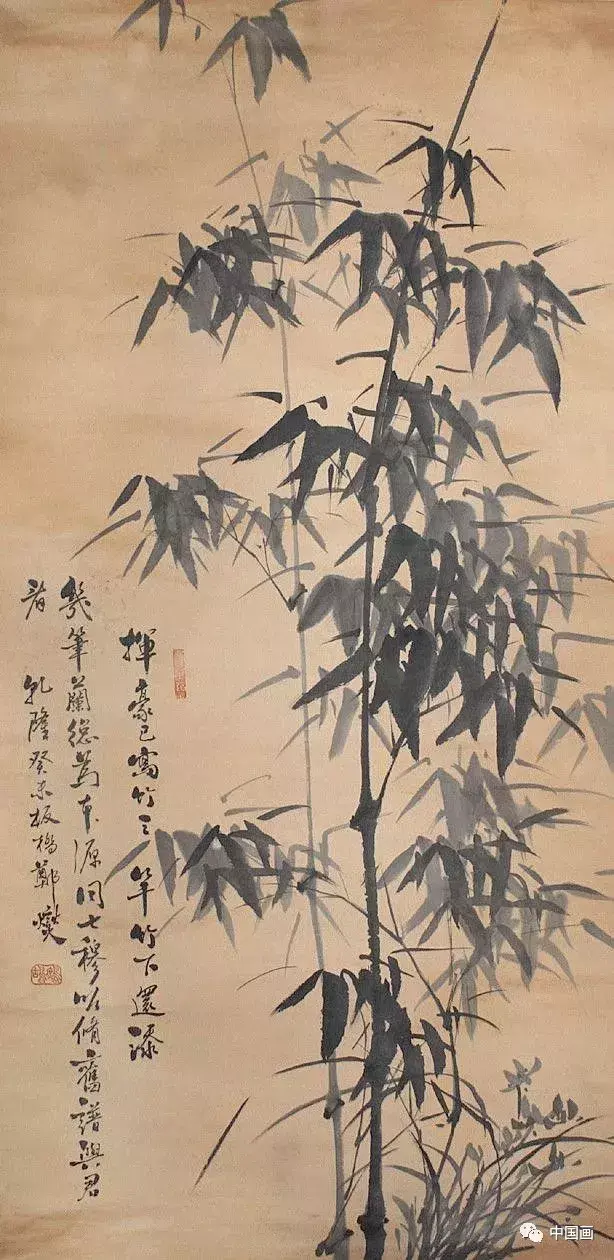 揮豪已寫竹三竿竹下還添
幾筆蘭總為本源同七穆欲修舊譜與君
看 乾隆癸未板橋鄭燮
中国画